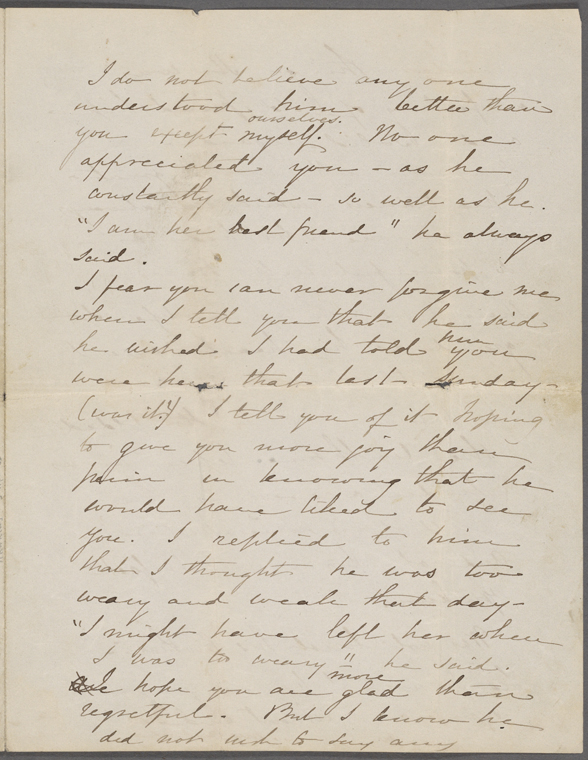 I do not believe any one
understood him better than
ourselves.
you except myself. No one
appreciated you – as he
constantly said – so well as he.
"I am her best friend" he always
said.
I fear you can never forgive me
when I tell you that he said
he wished I had told him you
were here that last Sunday –
(was it?) I tell you of it hoping
to give you more joy than
pain in knowing that he
would have liked to see
you. I replied to him
that I thought he was too
weary and weak that day –
"I might have left her when
I was too weary" he said.
more
I hope you are glad than
regretful. But I know he
did not wish to say any